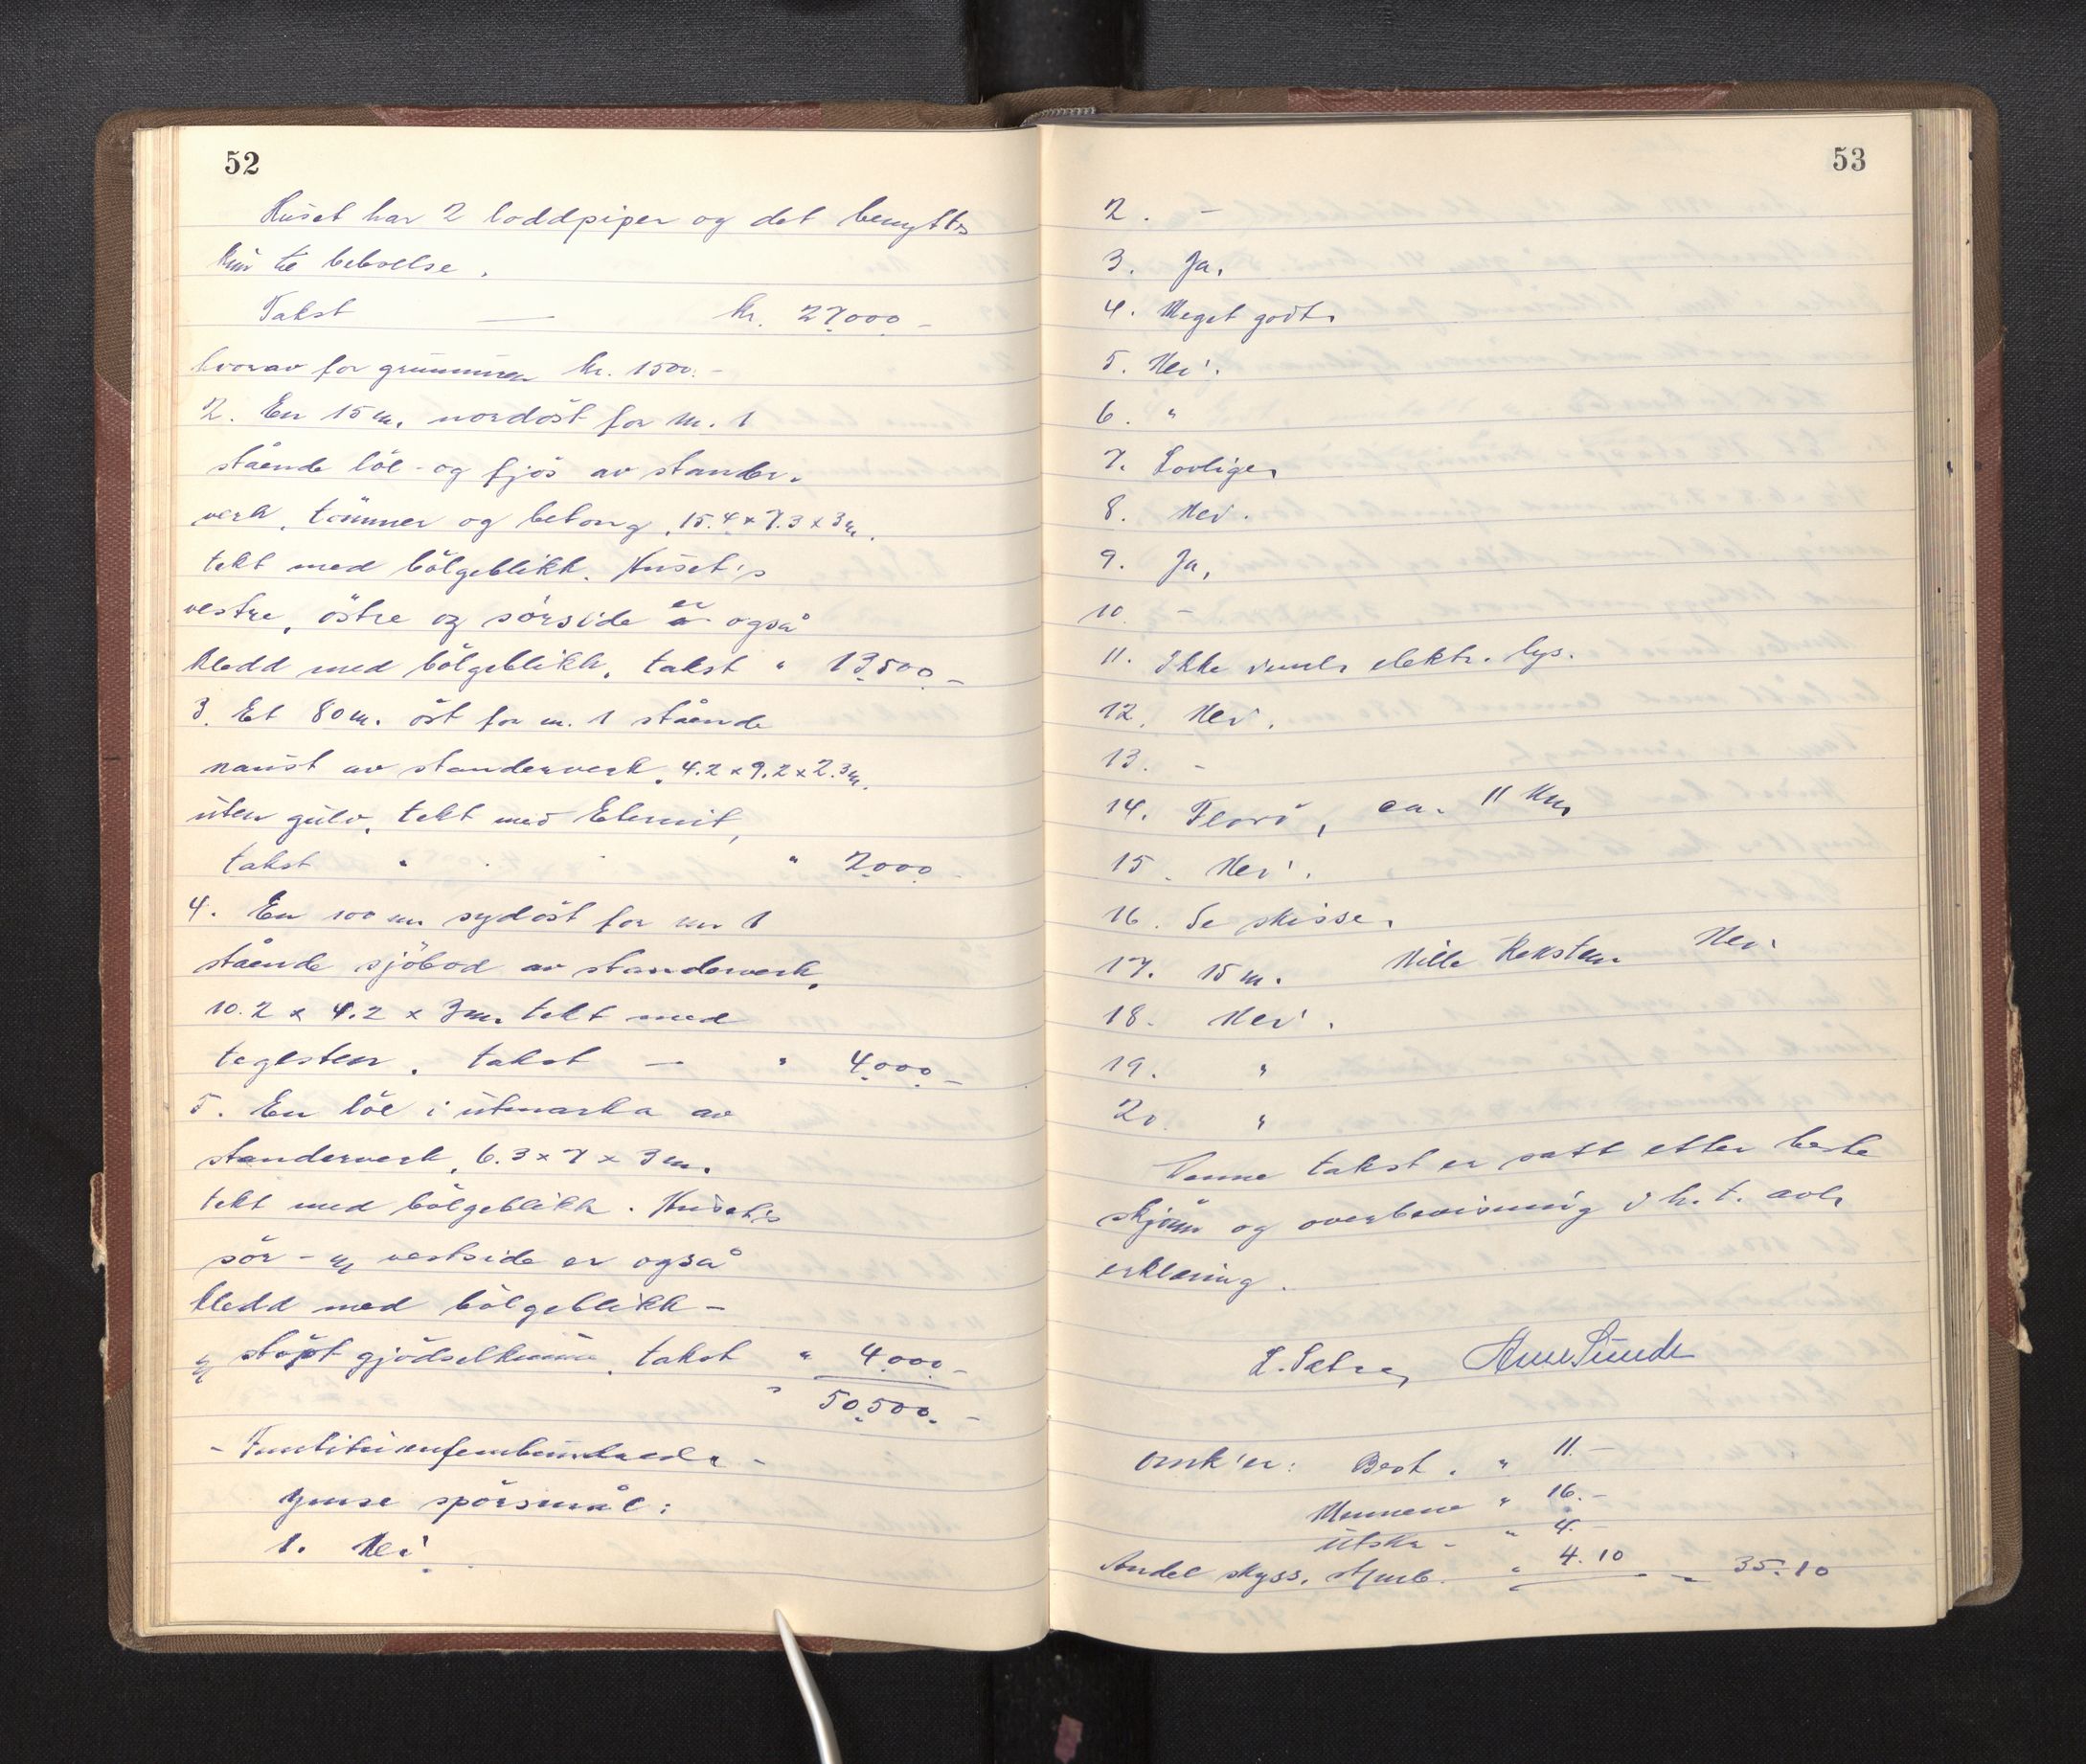 52
Huset har 2 loddpiper og det benyttes
kun til beboelse.
Takst — kr. 27.000.-
hvorav for grunnmuren kr. 1500.-
2. En 15 m. nordöst for nr. 1
stående löe- og fjös av stander-
verk, tömmer og betong, 15.4 x 7.3 x 3 m.
tekt med bölgeblikk. Huset's
vestre, östre og sörside er også
kledd med bölgeblikk, takst " 13.500.-
3. Et 80 m. öst for nr. 1 stående
naust av standerverk, 4.2 x 9.2 x 2.3 m.
uten gulv, tekt med Eternit,
takst " 2.000.-
4. En 100 m sydöst for nr 1
stående sjöbod av standerverk,
10.2 x 4.2 x 3 m. tekt med
teglsten. takst — " 4.000.-
5. En löe i utmarka av
standerverk, 6.3 x 7 x 3 m.
tekt med bölgeblikk. Huset's
sör- og vestside er også
kledd med bölgeblikk -
og stöpt gjödselkum, takst " 4.000.-
" 50.500.-
ymse spörsmål:
1. Nei
53
2. -
3. Ja.
4. Meget godt.
5. Nei.
6. "
7. Lovlige.
8. Nei.
9. Ja.
10. -
11. Ikke innl. elektr. lys.
12. Nei.
13. -
14. Florö, ca. 11 km
15. Nei.
16. Se skisse.
17. 15 m. Nille Rekstens Nei.
18. Nei.
19. "
20. "
Denne takst er satt etter beste
skjönn og overbevisning i h.t. avl.
erklæring.
L. Sætre, Arne Sunde
Omk'er: Best. " 11.-
Mennene " 16.-
Utskr. " 4.-
Andel skyss. " 4.10 = 35.10